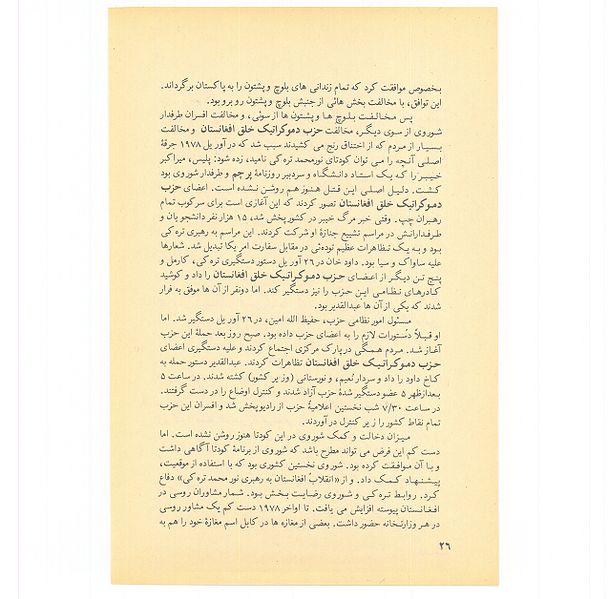 بخصوص موافقت کرد که تمام زندانی های بلوچ و پشتون را به پاکستان برگرداند.
این توافق، با مخالفت بخش هائی از جنبش بلوچ و پشتون رو برو بود.
پس مخالفت بلوچ ها و پشتون ها از سوئی، و مخالفت افسران طرفدار
شوروی از سوی دیگر، مخالفت حزب دموکراتیک خلق افغانستان و مخالفت
بسیار از مردم که از اختناق رنج می کشیدند سبب شد که در آور یل ۱۹۷۸ جرقهٔ
اصلی آنچه را می توان کودتای نورمحمد تره کی نامید، زده شود: پلیس، میراکبر
خیبر را که یک استاد دانشگاه و سردبیر روزنامهٔ پرچم و طرفدار شوروی بود
کشت. دلیل اصلی این قتل هنوز هم روشن نشده است. اعضای حزب
دموکراتیک خلق افغانستان تصور کردند که این آغازی است برای سرکوب تمام
رهبران چپ. وقتی خبر مرگ خیبر در کشور پخش شد، ۱۵ هزار نفر دانشجویان و
طرفدارانش در مراسم تشییع جنازهٔ او شرکت کردند. این مراسم به رهبری تره کی
بود و به یک تظاهرات عظیم توده‌ئی در مقابل سفارت امر یکا تبدیل شد. شعارها
علیه ساواک و سیا بود. داود خان در ۲۶ آور یل دستور دستگیری تره کی، کارمل و
پنج تن دیگر از اعضای حزب دموکراتیک خلق افغانستان را داد و کوشید
کادرهای نظامی این حزب را نیز دستگیر کند. اما دونفر از آن ها موفق به فرار
شدند که یکی از آن ها عبدالقدیر بود.
مسئول امور نظامی حزب، حفیظ الله امین، در ۲۶ آور یل دستگیر شد. اما
او قبلاً دستورات لازم را به اعضای حزب داده بود. صبح روز بعد حملهٔ این حزب
آغاز شد. مردم همگی در پارک مرکزی اجتماع کردند و علیه دستگیری اعضای
حزب دموکراتیک خلق افغانستان تظاهرات کردند. عبدالقدیر دستور حمله به
کاخ داود را داد و سردار نعیم، و نورستانی (وز یر کشور) کشته شدند. در ساعت ۵
بعدازظهر ۵ عضو دستگیر شدهٔ حزب آزاد شدند و کنترل اوضاع را در دست گرفتند.
در ساعت ۷/۳۰ شب نخستین اعلامیهٔ حزب از رادیو پخش شد و افسران این حزب
تمام نقاط کشور را ز یر کنترل در آوردند.
میزان دخالت و کمک شوروی در این کودتا هنوز روشن نشده است. اما
دست کم این فرض می تواند مطرح باشد که شوروی از برنامهٔ کودتا آگاهی داشت
و با آن موافقت کرده بود. شوروی نخستین کشوری بود که با استفاده از موقعیت،
پیشنهاد کمک داد. و از «انقلاب افغانستان به رهبری نور محمد تره کی» دفاع
کرد. روابط تره کی و شوروی رضایت بخش بود. شمار مشاوران روسی در
افغانستان پیوسته افزایش می یافت. تا اواخر ۱۹۷۸ دست کم یک مشاور روسی
در هر وزارتخانه حضور داشت. بعضی از مغازه ها در کابل اسم مغازهٔ خود را هم به
۲۶